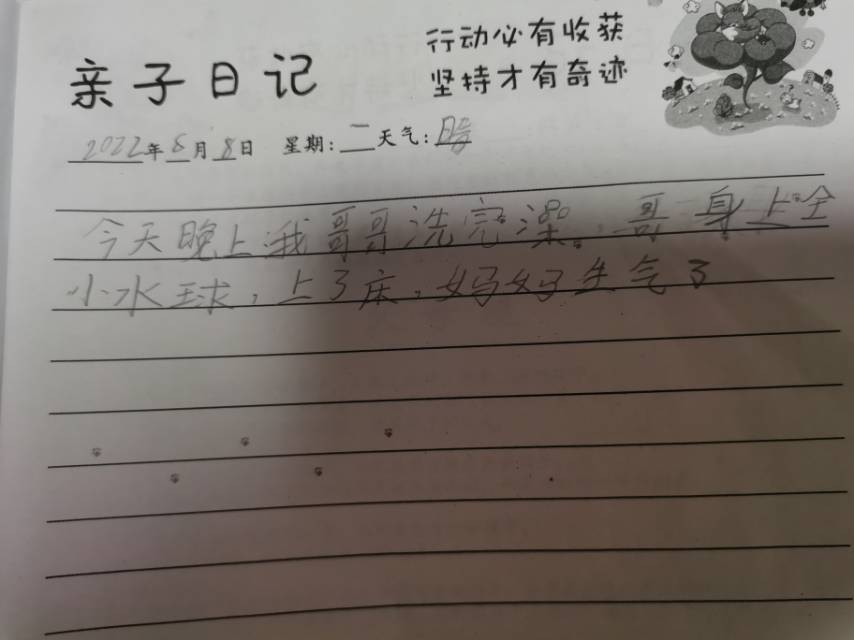 亲子日记
行动必有收获
坚持才有奇迹
2022年8月8日 星期:二天气:晴
今天晚上,我哥哥洗完澡,哥身上全
小水球,上了床,妈妈生气了